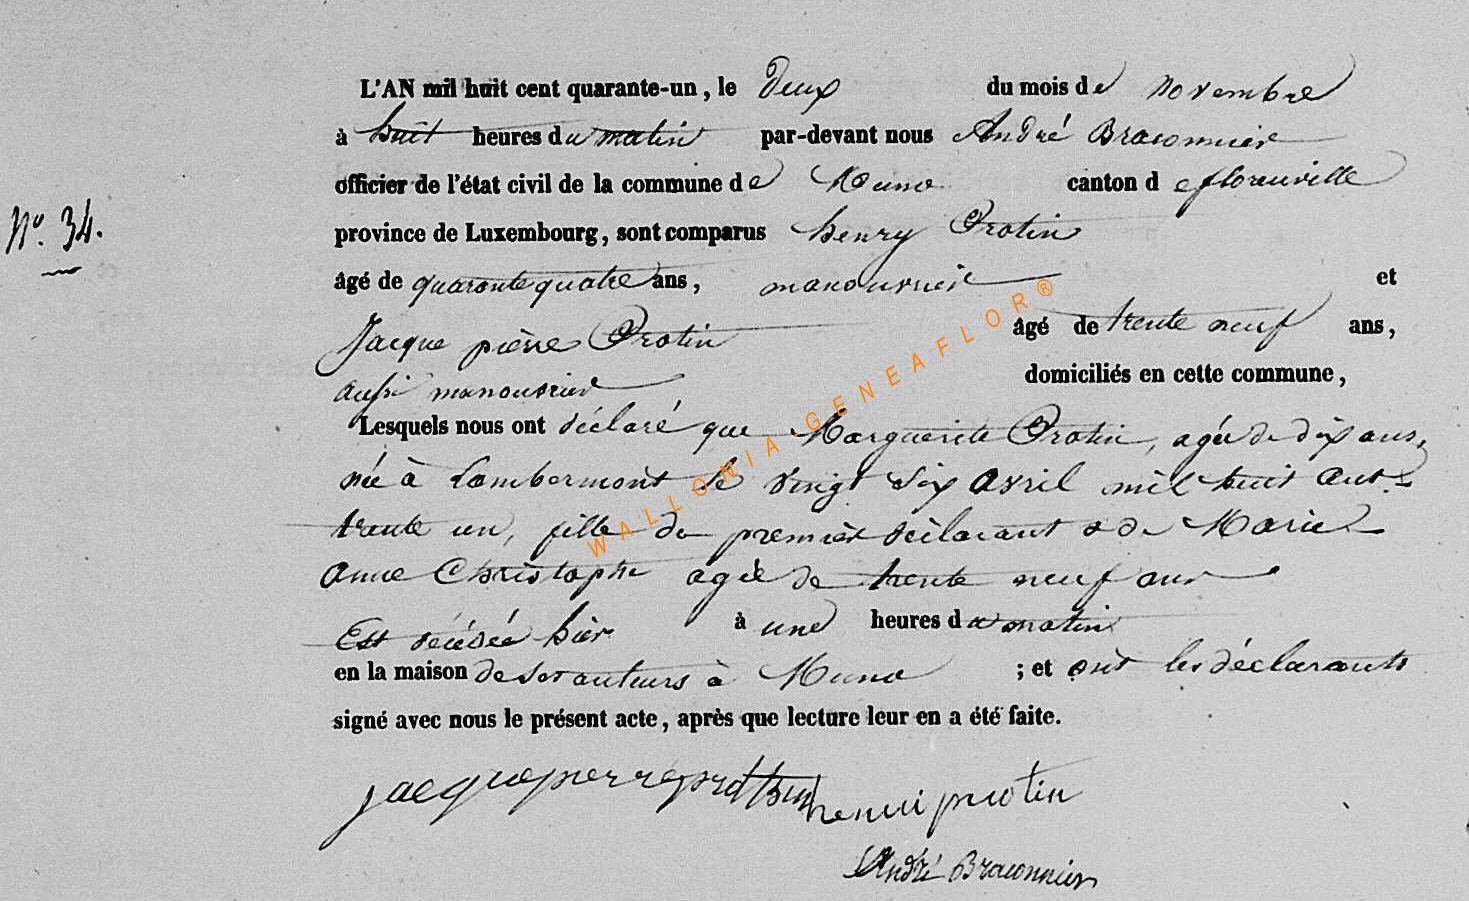 L'AN mil huit cent quarante-un, le Deux du mois de novembre
à huit heures du matin par-devant nous André Braconnier
officier de l'état civil de la commune de Muno canton de florenville
N° 34.
province de Luxembourg, sont comparus henry Protin
âgé de quarante quatre ans, manouvrier et
Jacque pierre Protin âgé de trente neuf ans,
aussi manouvrier domiciliés en cette commune,
Lesquels nous ont déclaré que Marguerite Protin, agée de dix ans,
née à Lambermont le vingt six avril mil huit cent
trente un, fille du premier déclarant & de Marie
anne Christophe agée de trente neuf ans
Est décédée hier à une heures du matin
en la maison de ses auteurs à Muno ; et ont les déclarants
signé avec nous le présent acte, après que lecture leur en a été faite.
jacquepierreprottin henri protin
André Braconnier
WALLONIA-GENEAFLOR®